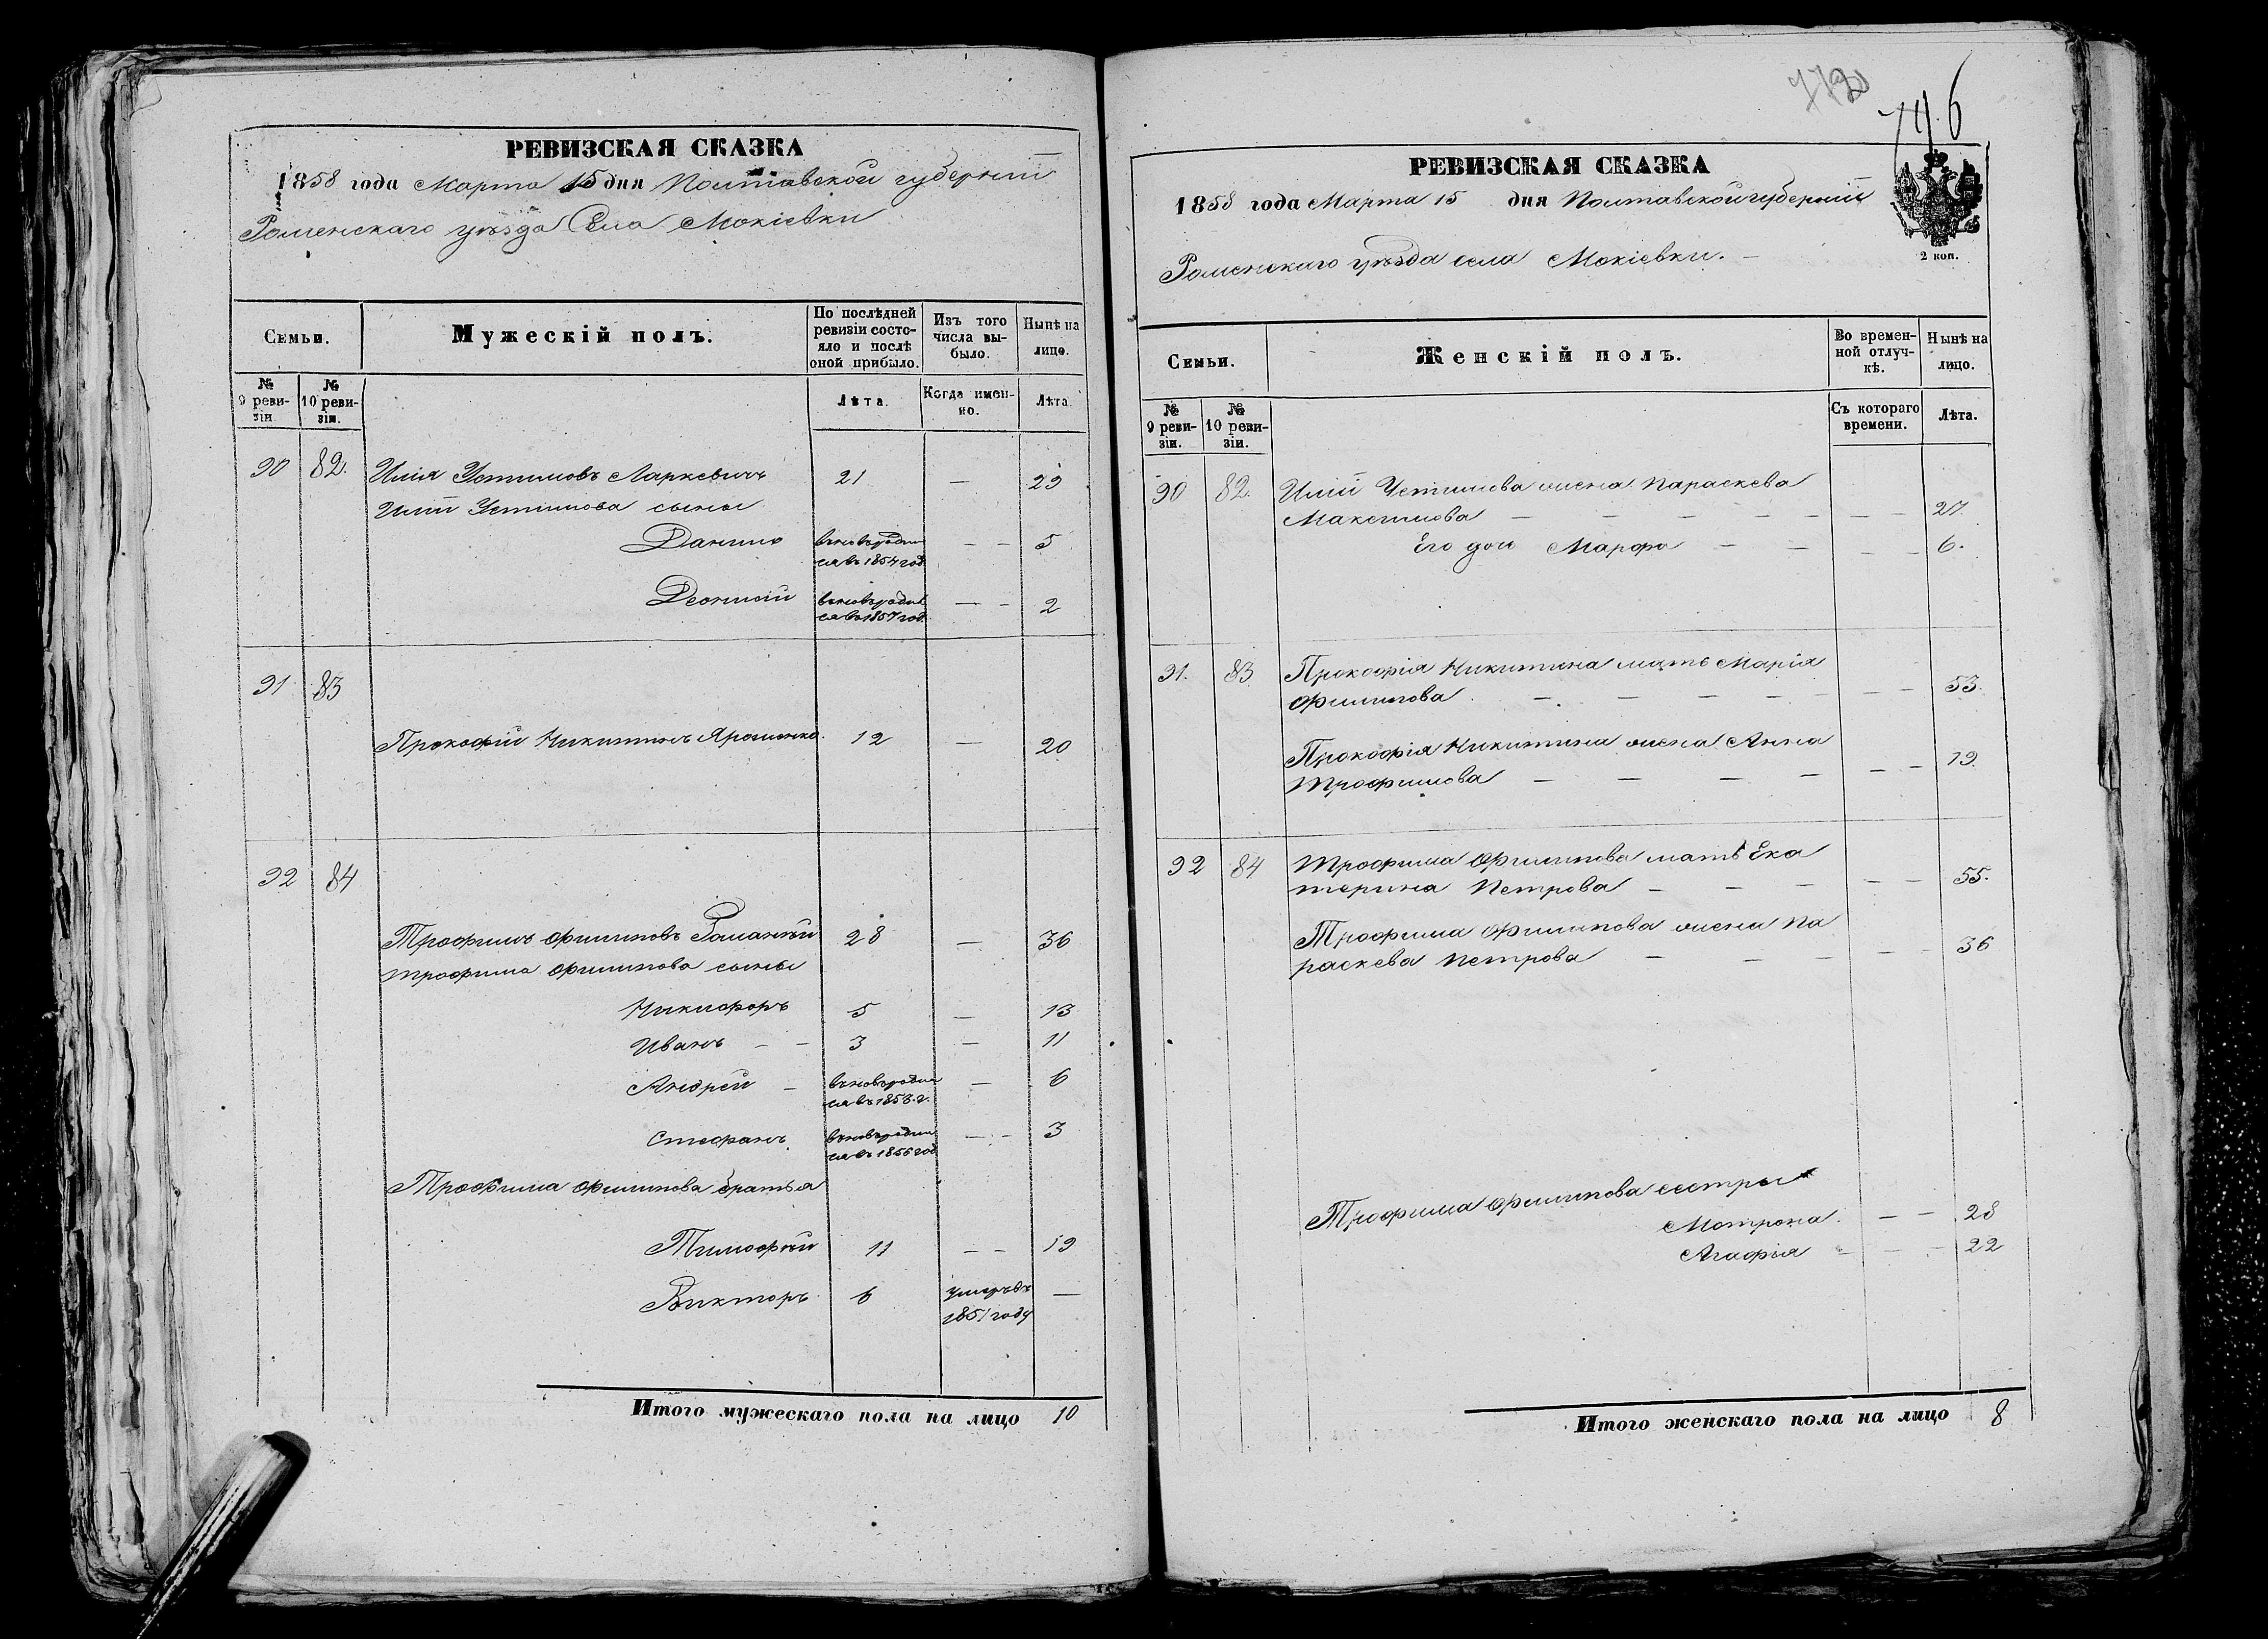 РЕВИЗСКАЯ СКАЗКА
1858 года Марта 15 дня Полтавской губерніи
Роменскаго уѣзда Села Мокіевки
Семьи.
Мужескій полъ.
По послѣдней ревизіи состояло и послѣ оной прибыло.
Изъ того числа выбыло.
Нынѣ на лицо.
№ 9 ревизіи
№ 10 ревизіи.
Лѣта.
Когда именно.
Лѣта.
90 82. Илія Устимовъ Ларкевичъ 21 — 29
Иліи Устимова сыны
Данило вновьродился въ 1854 год — — 5
Леонтій вновьродился въ 1857 год. — — 2
91 83
Прокофій Никитинъ Ярошенко. 12 — 20
92 84
Трофимъ Филиповъ Романъ 28 — 36
Трофима Филипова сыны
Никифоръ 5 — 13
Иванъ — — 3 — 11
Андрей — вновьродился въ 1853. г. — 6
Стефанъ вновьродился въ 1856 год — — 3
Трофима Филипова братья
Тимофѣй 11 — — 19
Викторъ 6 умеръ въ 1851 году —
Итого мужескаго пола на лицо 10
746
РЕВИЗСКАЯ СКАЗКА
1858 года Марта 15 дня Полтавской губерніи
2 коп.
Роменскаго уѣзда села Мокіевки. —
Семьи.
Женскій полъ.
Во временной отлучкѣ.
Нынѣ на лицо.
№ 9 ревизіи.
№ 10 ревизіи.
Съ котораго времени.
Лѣта.
90 82. Иліи Устимова жена Параскева
Максимова — — — — — — — 27.
Его дочь Марфа — — — — 6.
91. 83 Прокофія Никитина мать Марія
Филипова — — — — — — 53.
Прокофія Никитина жена Анна
Трофимова — — — — — — 19.
92 84 Трофима Филипова мать Ека
терина Петрова — — — — — 55.
Трофима Филипова жена Па
раскева Петрова — — — — — 36
Трофима Филипова сестры
Мотрона. — — 28
Агафія — — — 22
Итого женскаго пола на лицо 8